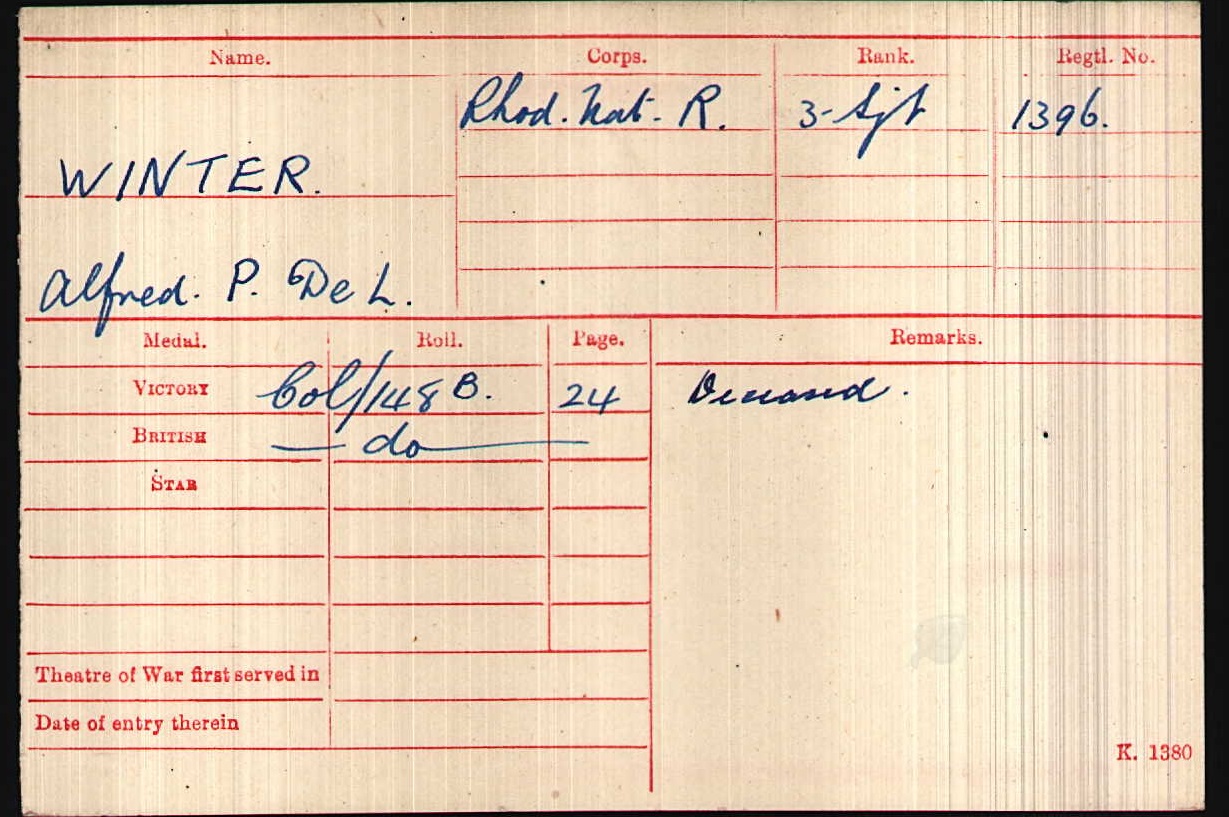 Name. Corps. Rank. Regtl. No.
Rhod. Nat. R. 3-Sjt 1396.
WINTER.
Alfred. P. De L.
Medal. Roll. Page. Remarks.
VICTORY Col/148 B. 24 Deceased.
BRITISH — do —
STAR
Theatre of War first served in
Date of entry therein
K. 1380